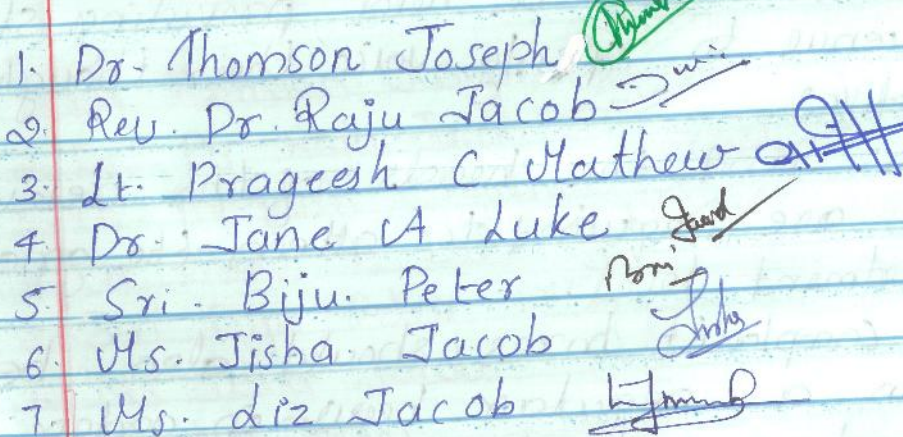 1. Dr. Thomson Joseph
2. Rev. Dr. Raju Jacob
3. Lt. Prageesh C Mathew
4 Dr. Jane A Luke
5. Sri. Biju. Peter
6. Ms. Jisha Jacob
7. Ms. Liz Jacob